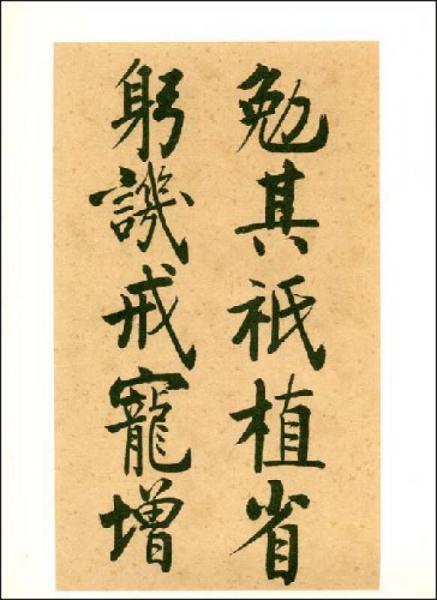 勉其祗植省
躬譏戒寵增